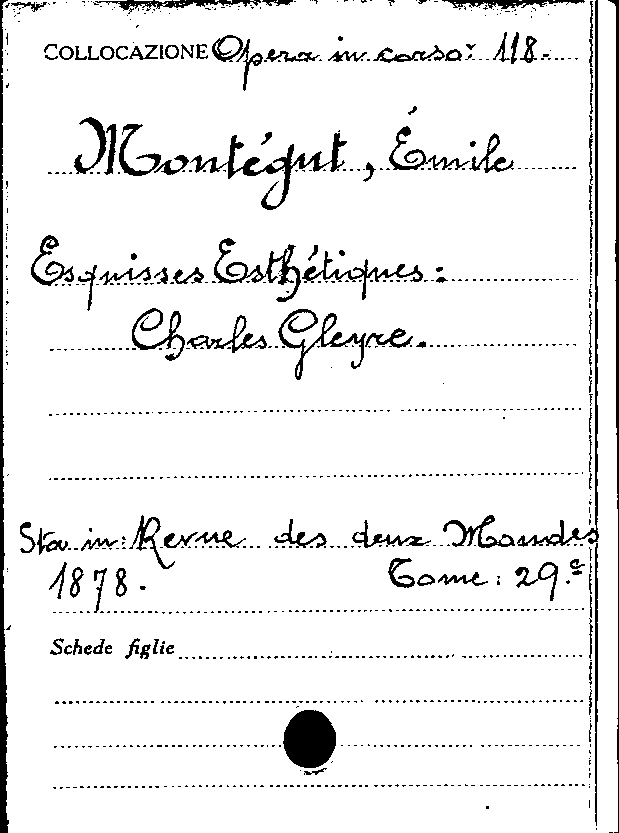 COLLOCAZIONE Opera in corso: 118.
Montégut, Émile
Esquisses Esthétiques:
Charles Gleyre.
Sta in: Revue des deux Mondes
1878. Tome: 29.e
Schede figlie